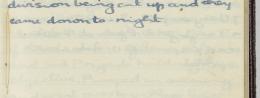 division being cut up and they
came down to-night